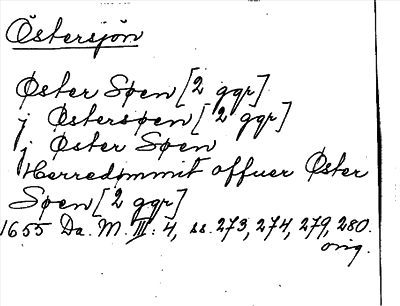 Östersjön
Øster Søen [2 ggr]
j Østersøen [2 ggr]
j Øster Søen
Herredømmit offuer Øster
Søen [2 ggr]
1655 Da. M. III: 4, ss. 273, 274, 279, 280.
orig.